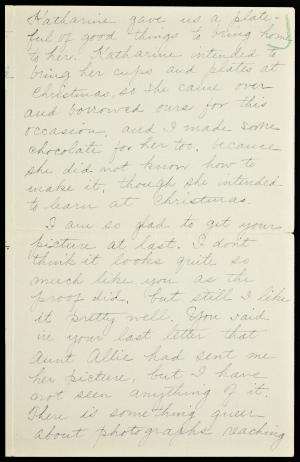 Katharine gave us a plate-
ful of good things to bring home
to her. Katharine intended to
bring her cups and plates at
Christmas, so she came over
and borrowed ours for this
occasion, and I made some
chocolate for her too, because
she did not know how to
make it, though she intended
to learn at Christmas.
I am so glad to get your
picture at last. I don't
think it looks quite so
much like you as the
proof did, but still I like
it pretty well. You said
in your last letter that
Aunt Allie had sent me
her picture, but I have
not seen anything of it.
There is something queer
about photographs reaching